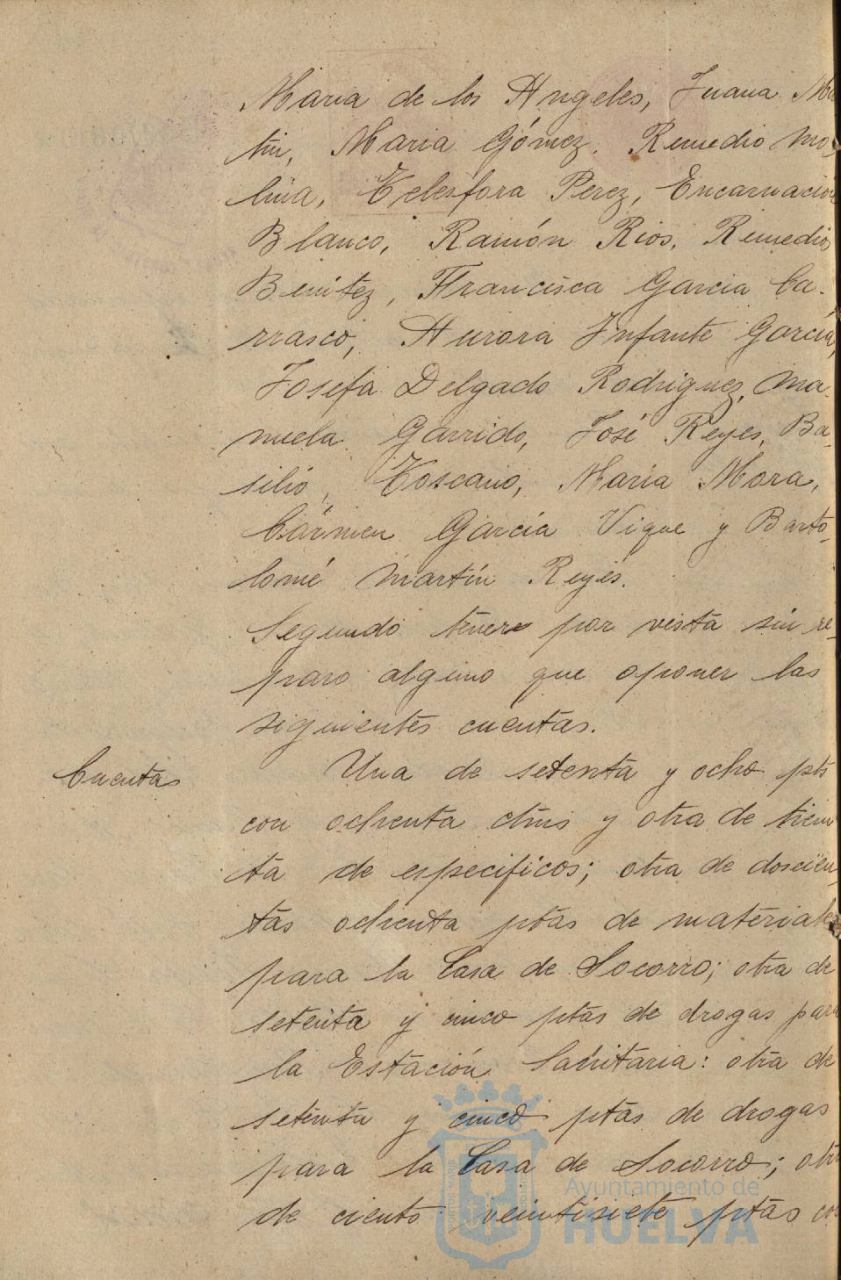 Maria de los Angeles, Juana Mar
tin, Maria Gómez, Remedio Mo-
lina, Telesfora Perez, Encarnación
Blanco, Ramón Rios, Remedio
Benitez, Francisca Garcia Ca-
rrasco, Aurora Infante García,
Josefa Delgado Rodriguez, Ma-
nuela Garrido, José Reyes, Ba-
silio, Toscano, María Mora,
Cármen García Vique y Barto-
lomé Martín Reyes.
Segundo tener por vista sin re-
paro alguno que oponer las
siguientes cuentas.
Cuentas
Una de setenta y ocho pts
con ochenta ctms y otra de
de especificos; otra de doscien
tas ochenta ptas de material
para la Casa de Socorro; otra de
setenta y cinco ptas de drogas para
la Estación Sanitaria: otra de
setenta y cinco ptas de drogas
para la Casa de Socorro; otra
de ciento veintisiete ptas co
Ayuntamiento de
HUELVA